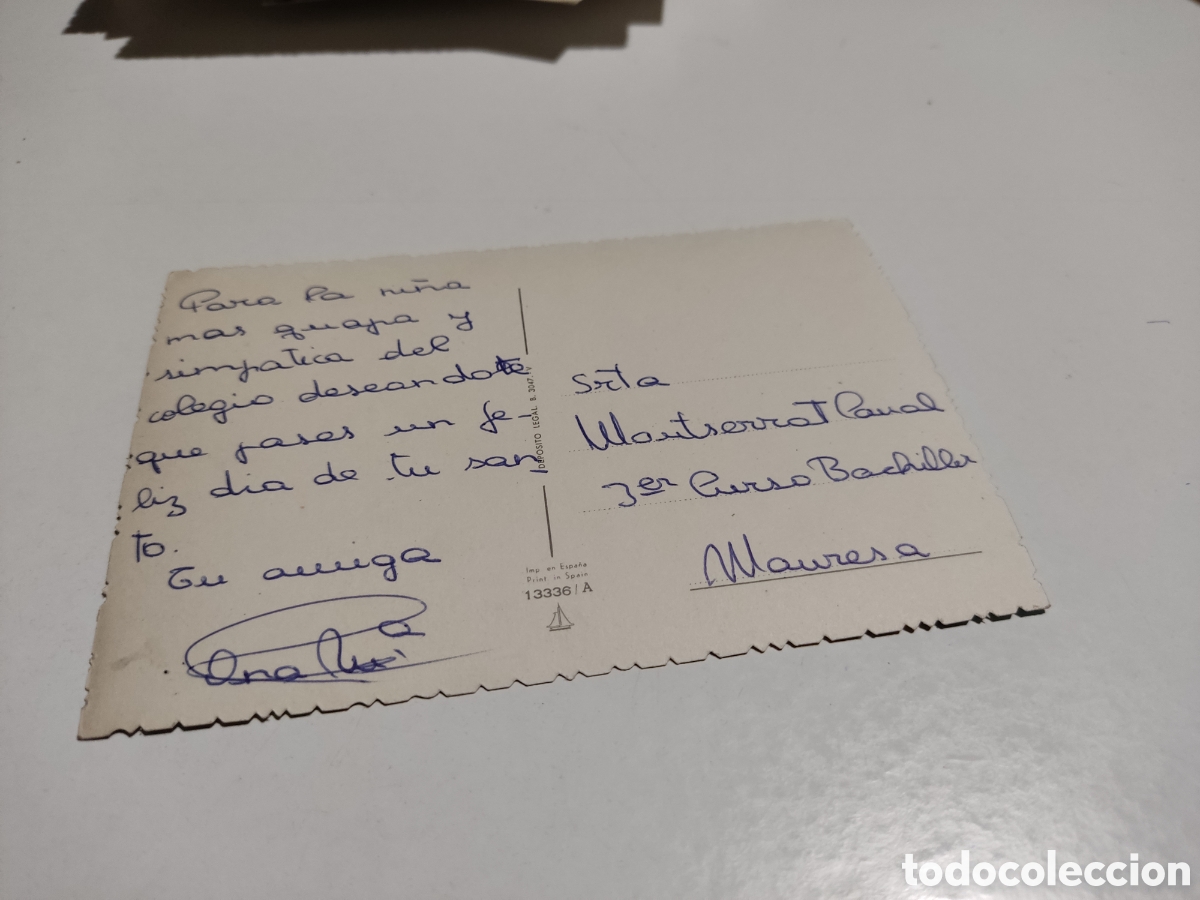 Para la niña
mas guapa y
simpatica del
colegio deseandote
que pases un fe-
liz dia de tu san
to.
Tu amiga
Ana
DEPOSITO LEGAL B. 3047
Imp. en España
Print. in Spain
13336/A
Srta
Montserrat Canal
3er Curso Bachiller
Manresa
todocoleccion